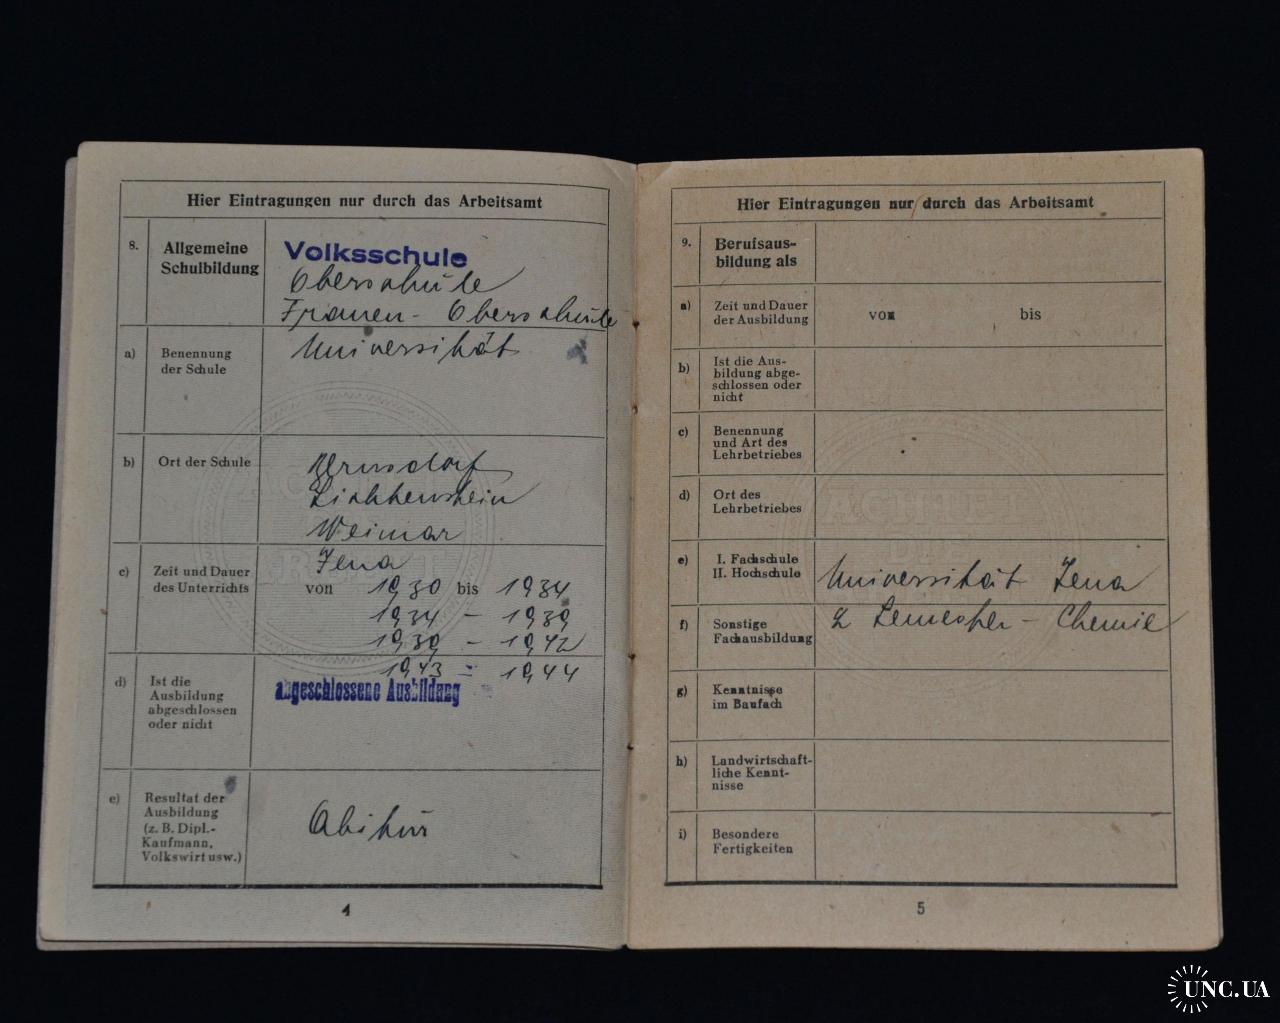 Hier Eintragungen nur durch das Arbeitsamt
8. Allgemeine Schulbildung
Volksschule
Oberschule
Frauen-Oberschule
Universität
a) Benennung
der Schule
b) Ort der Schule
Bernsdorf
Lichtenstein
Weimar
Jena
c) Zeit und Dauer
des Unterrichts
von 1930 bis 1934
1934 - 1939
1939 - 1942
1943 - 1944
d) Ist die
Ausbildung
abgeschlossen
oder nicht
abgeschlossene Ausbildung
e) Resultat der
Ausbildung
(z. B. Dipl.-
Kaufmann,
Volkswirt usw.)
Abitur
4
Hier Eintragungen nur durch das Arbeitsamt
9. Berufsaus-
bildung als
a) Zeit und Dauer
der Ausbildung
von bis
b) Ist die Aus-
bildung abge-
schlossen oder
nicht
c) Benennung
und Art des
Lehrbetriebes
d) Ort des
Lehrbetriebes
e) I. Fachschule
II. Hochschule
Universität Jena
2 Semester - Chemie
f) Sonstige
Fachausbildung
g) Kenntnisse
im Baufach
h) Landwirtschaft-
liche Kennt-
nisse
i) Besondere
Fertigkeiten
5
ACHTET
DIE
ARBEIT
ACHTET
DIE
UNC.UA